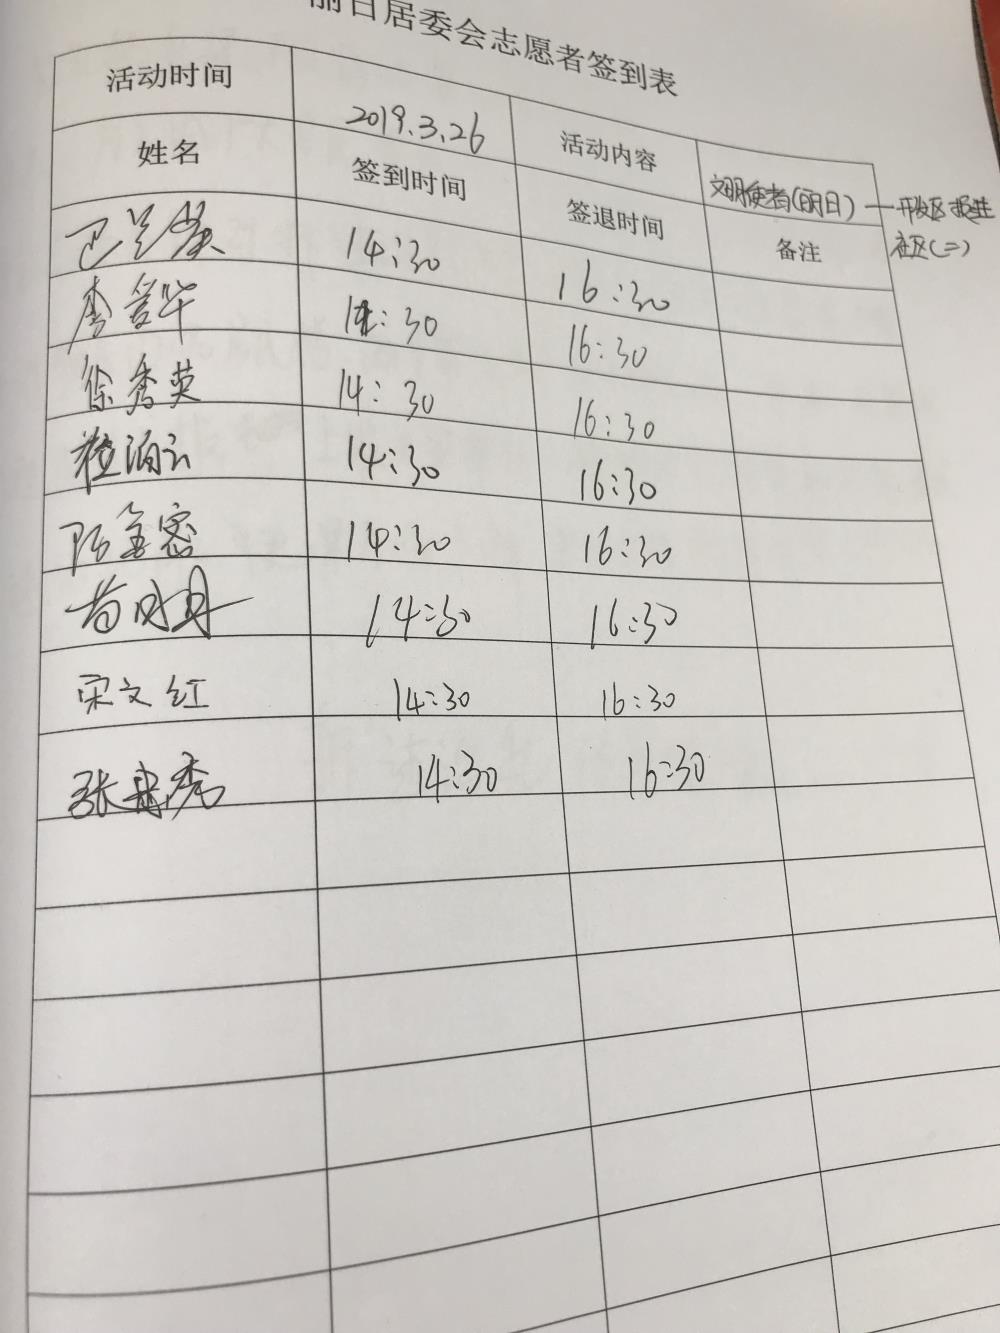 丽日居委会志愿者签到表
活动时间 2019.3.26 活动内容 文明使者(丽日)一开发区
社区(二)
姓名 签到时间 签退时间 备注
14:30 16:30
李爱华 14:30 16:30
徐秀英 14:30 16:30
14:30 16:30
14:30 16:30
14:30 16:30
宋文红 14:30 16:30
张 秀 14:30 16:30